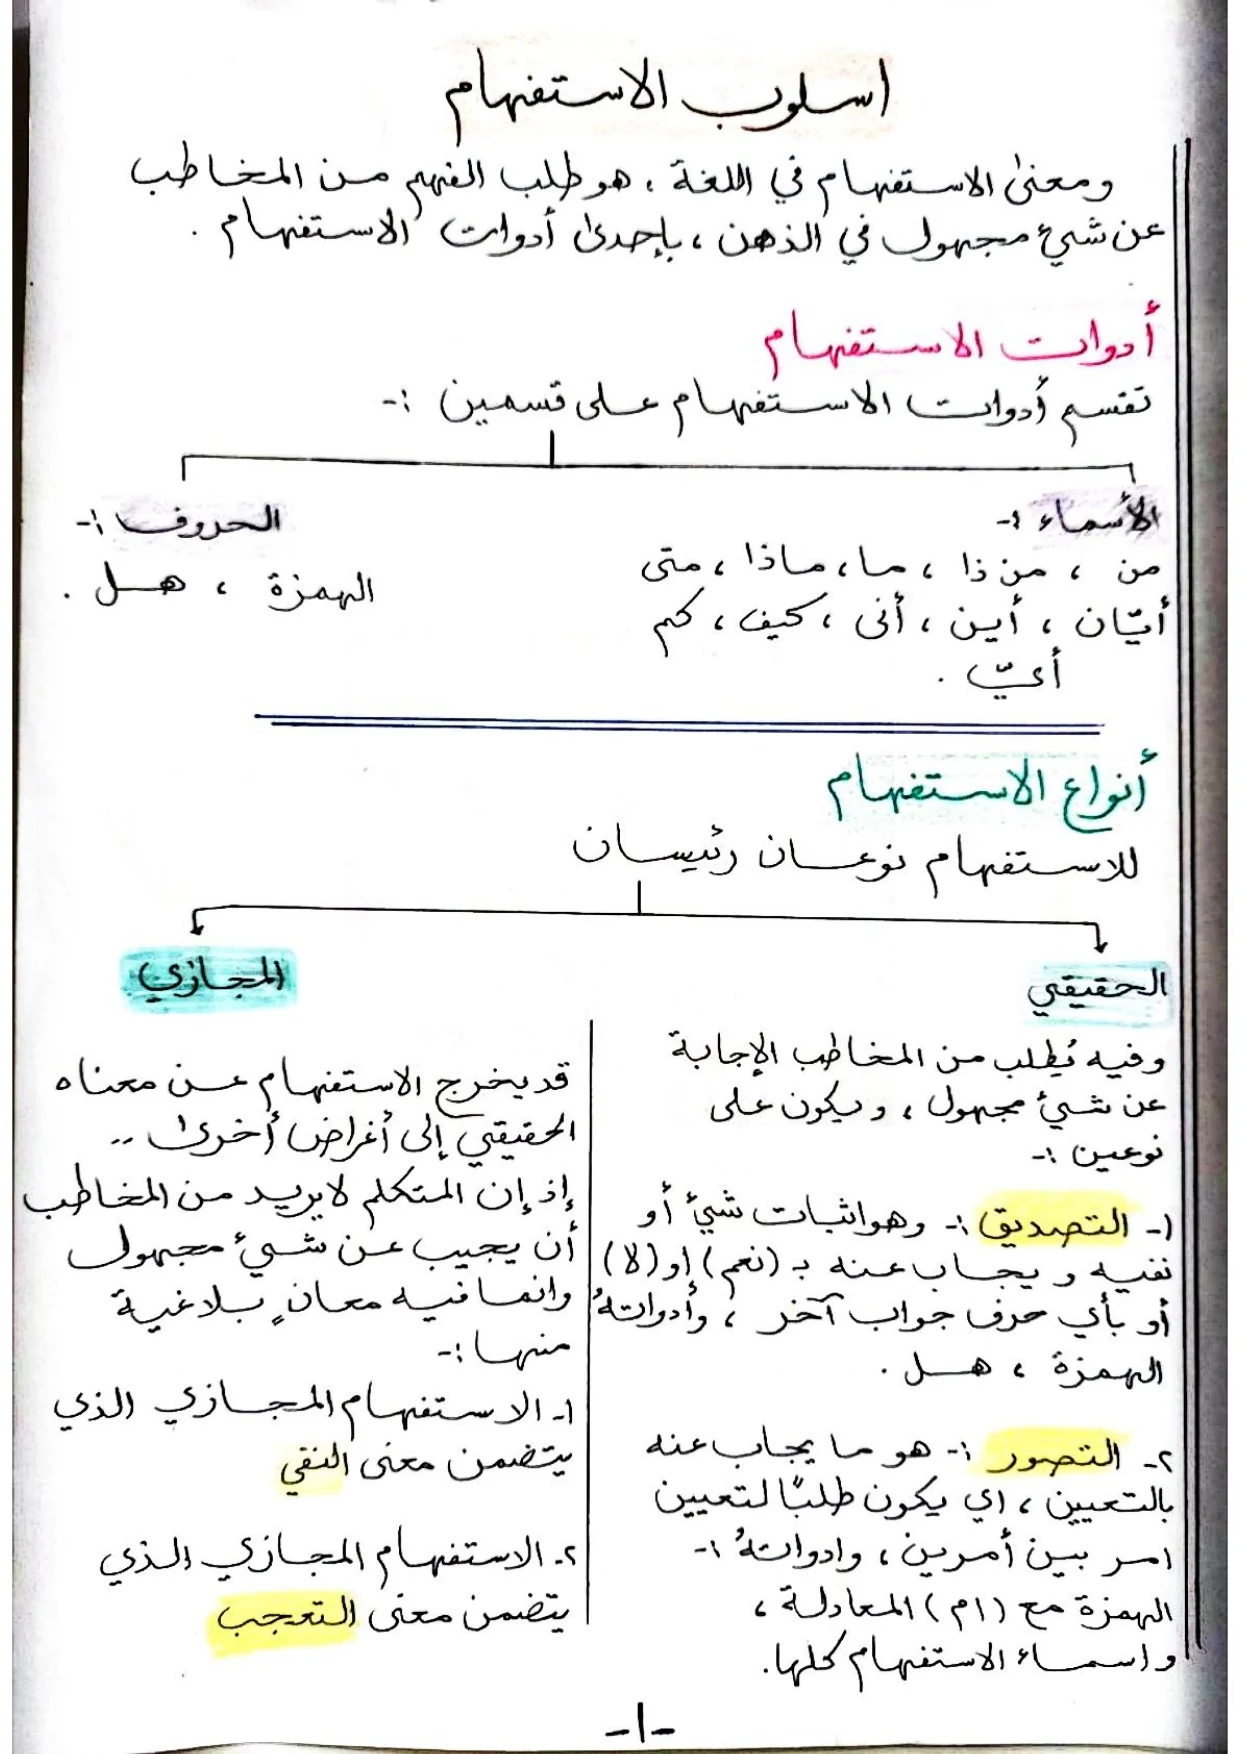 اسلوب الاستفهام
ومعنى الاستفهام في اللغة ، هو طلب الفهم من المخاطب
عن شيء مجهول في الذهن ، بإحدى أدوات الاستفهام .
أدوات الاستفهام
تقسم أدوات الاستفهام على قسمين :-
الأسماء :-
من ، من ذا ، ما ، ماذا ، متى
أيّان ، أين ، أنى ، كيف ، كم
أيّ .
الحروف :-
الهمزة ، هل .
أنواع الاستفهام
للاستفهام نوعان رئيسان
الحقيقي
وفيه يُطلب من المخاطب الإجابة
عن شيء مجهول ، ويكون على
نوعين :-
١- التصديق :- وهو اثبات شيء أو
نفيه ويجاب عنه بـ (نعم) إو (لا)
أو بأي حرف جواب آخر ، وأدواتهُ
الهمزة ، هل .
٢- التصور :- هو ما يجاب عنه
بالتعيين ، اي يكون طلبًا لتعيين
امر بين أمرين ، وادواتهُ :-
الهمزة مع (ام) المعادلة ،
واسماء الاستفهام كلها.
المجازي
قد يخرج الاستفهام عن معناه
الحقيقي إلى أغراض أخرى ..
إذ إن المتكلم لا يريد من المخاطب
أن يجيب عن شيء مجهول
وانما فيه معانٍ بلاغية
منها :-
١- الاستفهام المجازي الذي
يتضمن معنى النفي
٢- الاستفهام المجازي الذي
يتضمن معنى التعجب
-١-